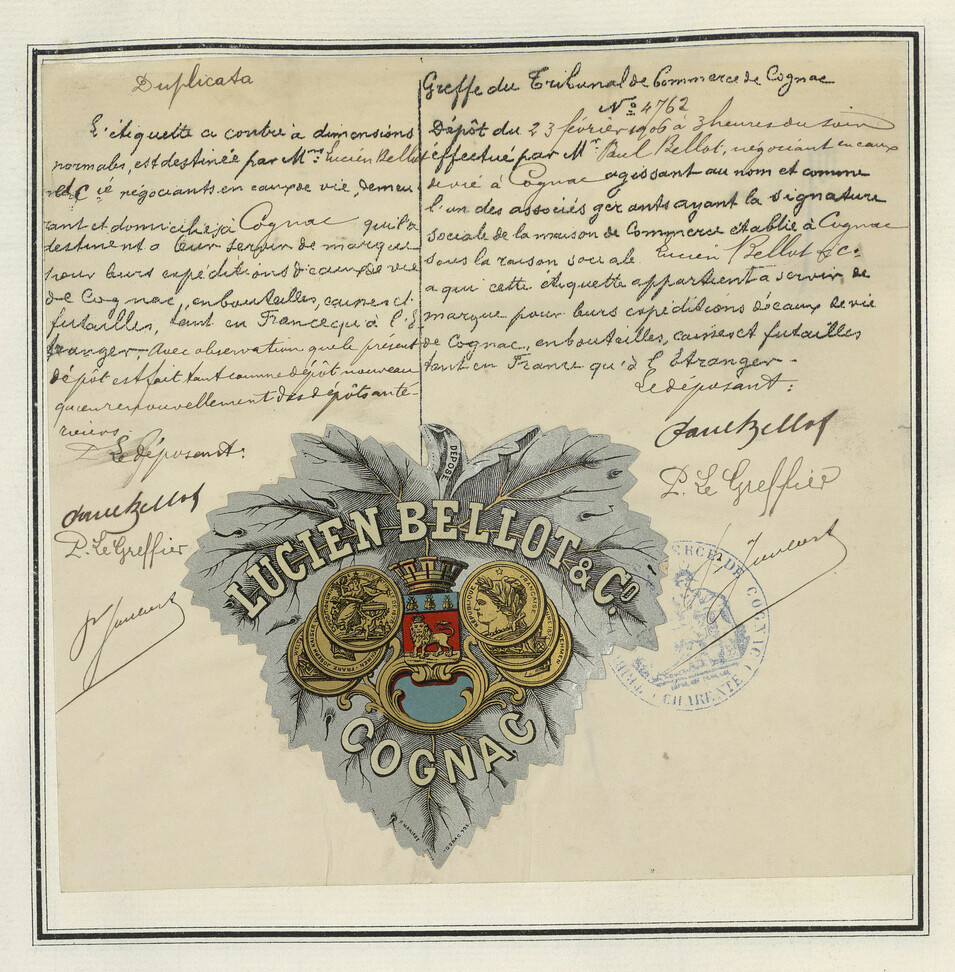 Duplicata
L'étiquette ci contre à dimensions
normales, est destinée par Mrs Lucien Bellot
et Cie négociants en eaux de vie, demeu
rant et domiciliés à Cognac qui la
destinent à leur servir de marque
pour leurs expéditions d'eaux de vie
de Cognac, en bouteilles, caisses et
futailles, tant en France qu'à l'É
tranger. Avec observation que le présent
dépôt est fait tant comme dépôt nouveau
qu'en renouvellement des dépôts anté-
rieurs.
Le déposant:
Paul Bellot
P. Le Greffier
Greffe du Tribunal de Commerce de Cognac
No 4762
Dépôt du 23 février 1906 à 3 heures du soir
effectué par Mr Paul Bellot, négociant en eaux
de vie à Cognac agissant au nom et comme
l'un des associés gérants ayant la signature
sociale de la maison de Commerce établie à Cognac
sous la raison sociale Lucien Bellot & Co
a qui cette étiquette appartient a servir de
marque pour leurs expéditions d'eaux de vie
de Cognac, en bouteilles, caisses et futailles
tant en France qu'à l'Étranger.
Le déposant:
Paul Bellot
P. Le Greffier
DÉPOSÉ
LUCIEN BELLOT & CO
REPUBLIQUE FRANÇAISE
COGNAC
COMMERCE DE COGNAC
CHARENTE